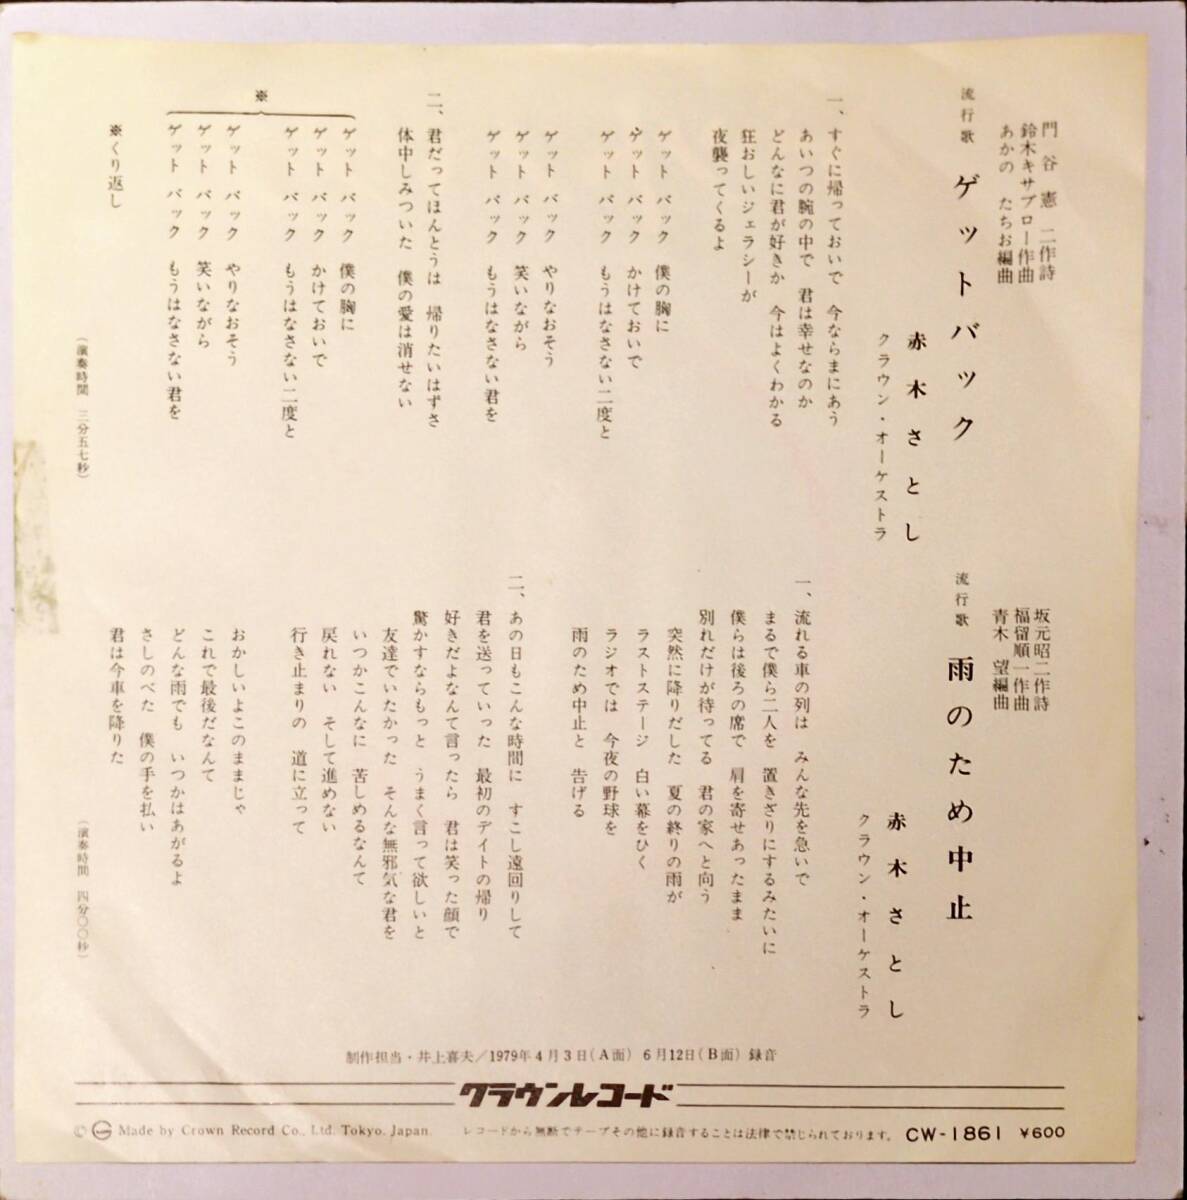 門谷憲二作詩
鈴木キサブロー作曲
あかの たちお編曲
流行歌 ゲットバック
赤木さとし
クラウン・オーケストラ
一、すぐに帰っておいで 今ならまにあう
あいつの腕の中で 君は幸せなのか
どんなに君が好きか 今はよくわかる
狂おしいジェラシーが
夜襲ってくるよ
ゲット バック 僕の胸に
ゲット バック かけておいで
ゲット バック もうはなさない二度と
ゲット バック やりなおそう
ゲット バック 笑いながら
ゲット バック もうはなさない君を
二、君だってほんとうは 帰りたいはずさ
体中しみついた 僕の愛は消せない
※
ゲット バック 僕の胸に
ゲット バック かけておいで
ゲット バック もうはなさない二度と
ゲット バック やりなおそう
ゲット バック 笑いながら
ゲット バック もうはなさない君を
※くり返し
(演奏時間 三分五七秒)
坂元昭二作詩
福留順一作曲
青木 望編曲
流行歌 雨のため中止
赤木さとし
クラウン・オーケストラ
一、流れる車の列は みんな先を急いで
まるで僕ら二人を 置きざりにするみたいに
僕らは後ろの席で 肩を寄せあったまま
別れだけが待ってる 君の家へと向う
突然に降りだした 夏の終りの雨が
ラストステージ 白い幕をひく
ラジオでは 今夜の野球を
雨のため中止と 告げる
二、あの日もこんな時間に すこし遠回りして
君を送っていった 最初のデイトの帰り
好きだよなんて言ったら 君は笑った顔で
驚かすならもっと うまく言って欲しいと
友達でいたかった そんな無邪気な君を
いつかこんなに 苦しめるなんて
戻れない そして進めない
行き止まりの 道に立って
おかしいよこのままじゃ
これで最後だなんて
どんな雨でも いつかはあがるよ
さしのべた 僕の手を払い
君は今車を降りた
(演奏時間 四分〇〇秒)
制作担当・井上喜夫/1979年4月3日(A面) 6月12日(B面) 録音
クラウンレコード
© Made by Crown Record Co., Ltd. Tokyo. Japan. レコードから無断でテープその他に録音することは法律で禁じられております。 CW-1861 ¥600